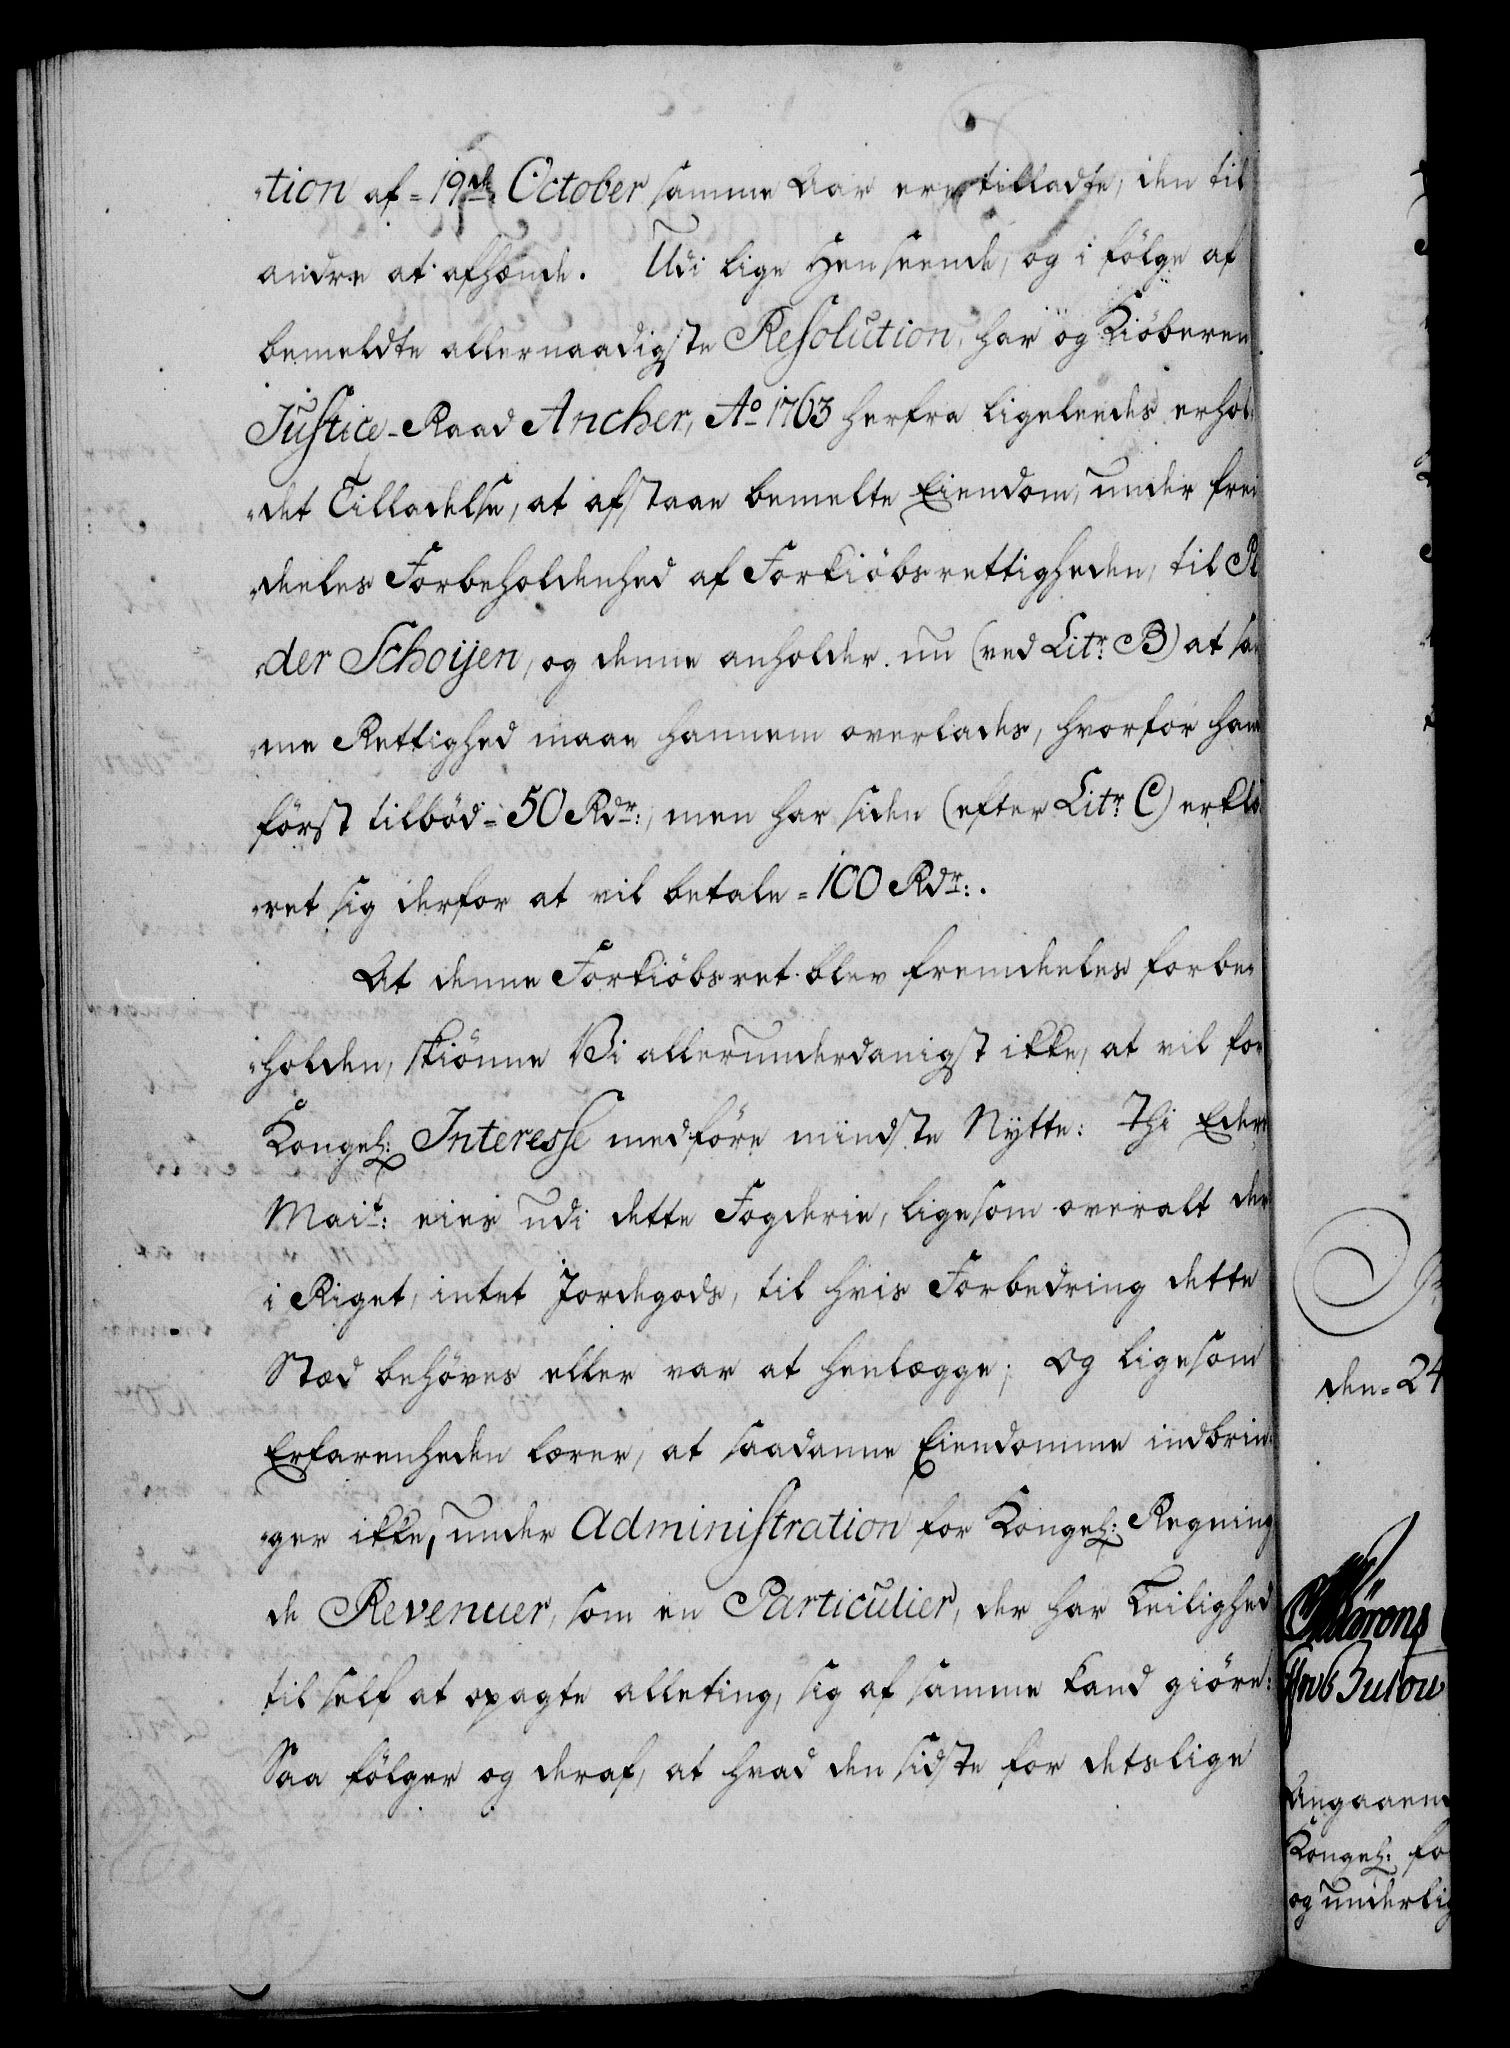 -tion af = 19de October samme Aar ere tilladte, den til
andre at afhænde. Udi lige Henseende, og i fölge af
bemeldte allernaadigste Resolution, har og Kiöberen
Justice-Raad Ancher, Ao 1763 herfra ligeleedes erhol-
-det Tilladelse, at afstaae bemelte Eiendom, under frem
-deeles Forbeholdenhed af Forkiöbsrettigheden, til Pe
-der Schoijen, og denne anholder nu (ved Litr. B) at sam
-me Rettighed maae hannem overlades, hvorfor han
först tilböd = 50 Rdr:, men har siden (efter Litr. C) erklæ
-ret sig derfor at vil betale = 100 Rdr:.
At denne Forkiöbsret blev fremdeeles forbe-
-holden, skiönne Vi allerunderdanigst ikke, at vil for
Kongel: Interesse medföre mindste Nytte: Thi Eders
Mait: eies udi dette Fogderie, ligesom overalt der
i Riget, intet Jordegods, til hvis Forbedring dette
Stæd behöves eller var at henlægge; Og ligesom
Erfarenheden lærer, at saadanne Eiendomme indbrin-
-ger ikke, under Administration for Kongel: Regning
de Revenuer, som en Particulier, der har Leilighed
til self at opagte alleting, sig af samme kand giöre:
Saa fölger og deraf, at hvad den sidste for detslige
den = 24
Bulou
Angaaend
Kongel: fo
og underlig